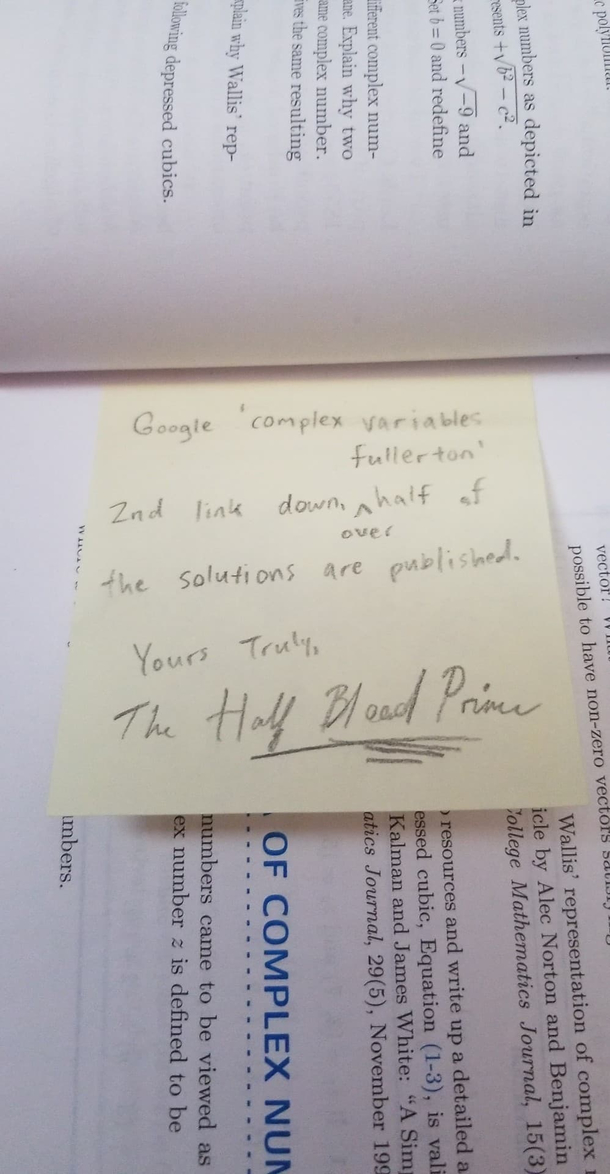 Google 'complex variables
fullerton'
2nd link down, over half of
the solutions are published.
Yours Truly,
The Half Blood Prince
plex numbers as depicted in
esents +√b² − c².
numbers −√−9 and
Set b = 0 and redefine
ifferent complex num-
ane. Explain why two
ame complex number.
ives the same resulting
plain why Wallis' rep-
following depressed cubics.
vector?
possible to have non-zero vectors
Wallis' representation of complex
icle by Alec Norton and Benjamin
College Mathematics Journal, 15(3)
resources and write up a detailed a
essed cubic, Equation (1-3), is vali
Kalman and James White: "A Simp
atics Journal, 29(5), November 199
OF COMPLEX NUM
numbers came to be viewed as
ex number z is defined to be
umbers.